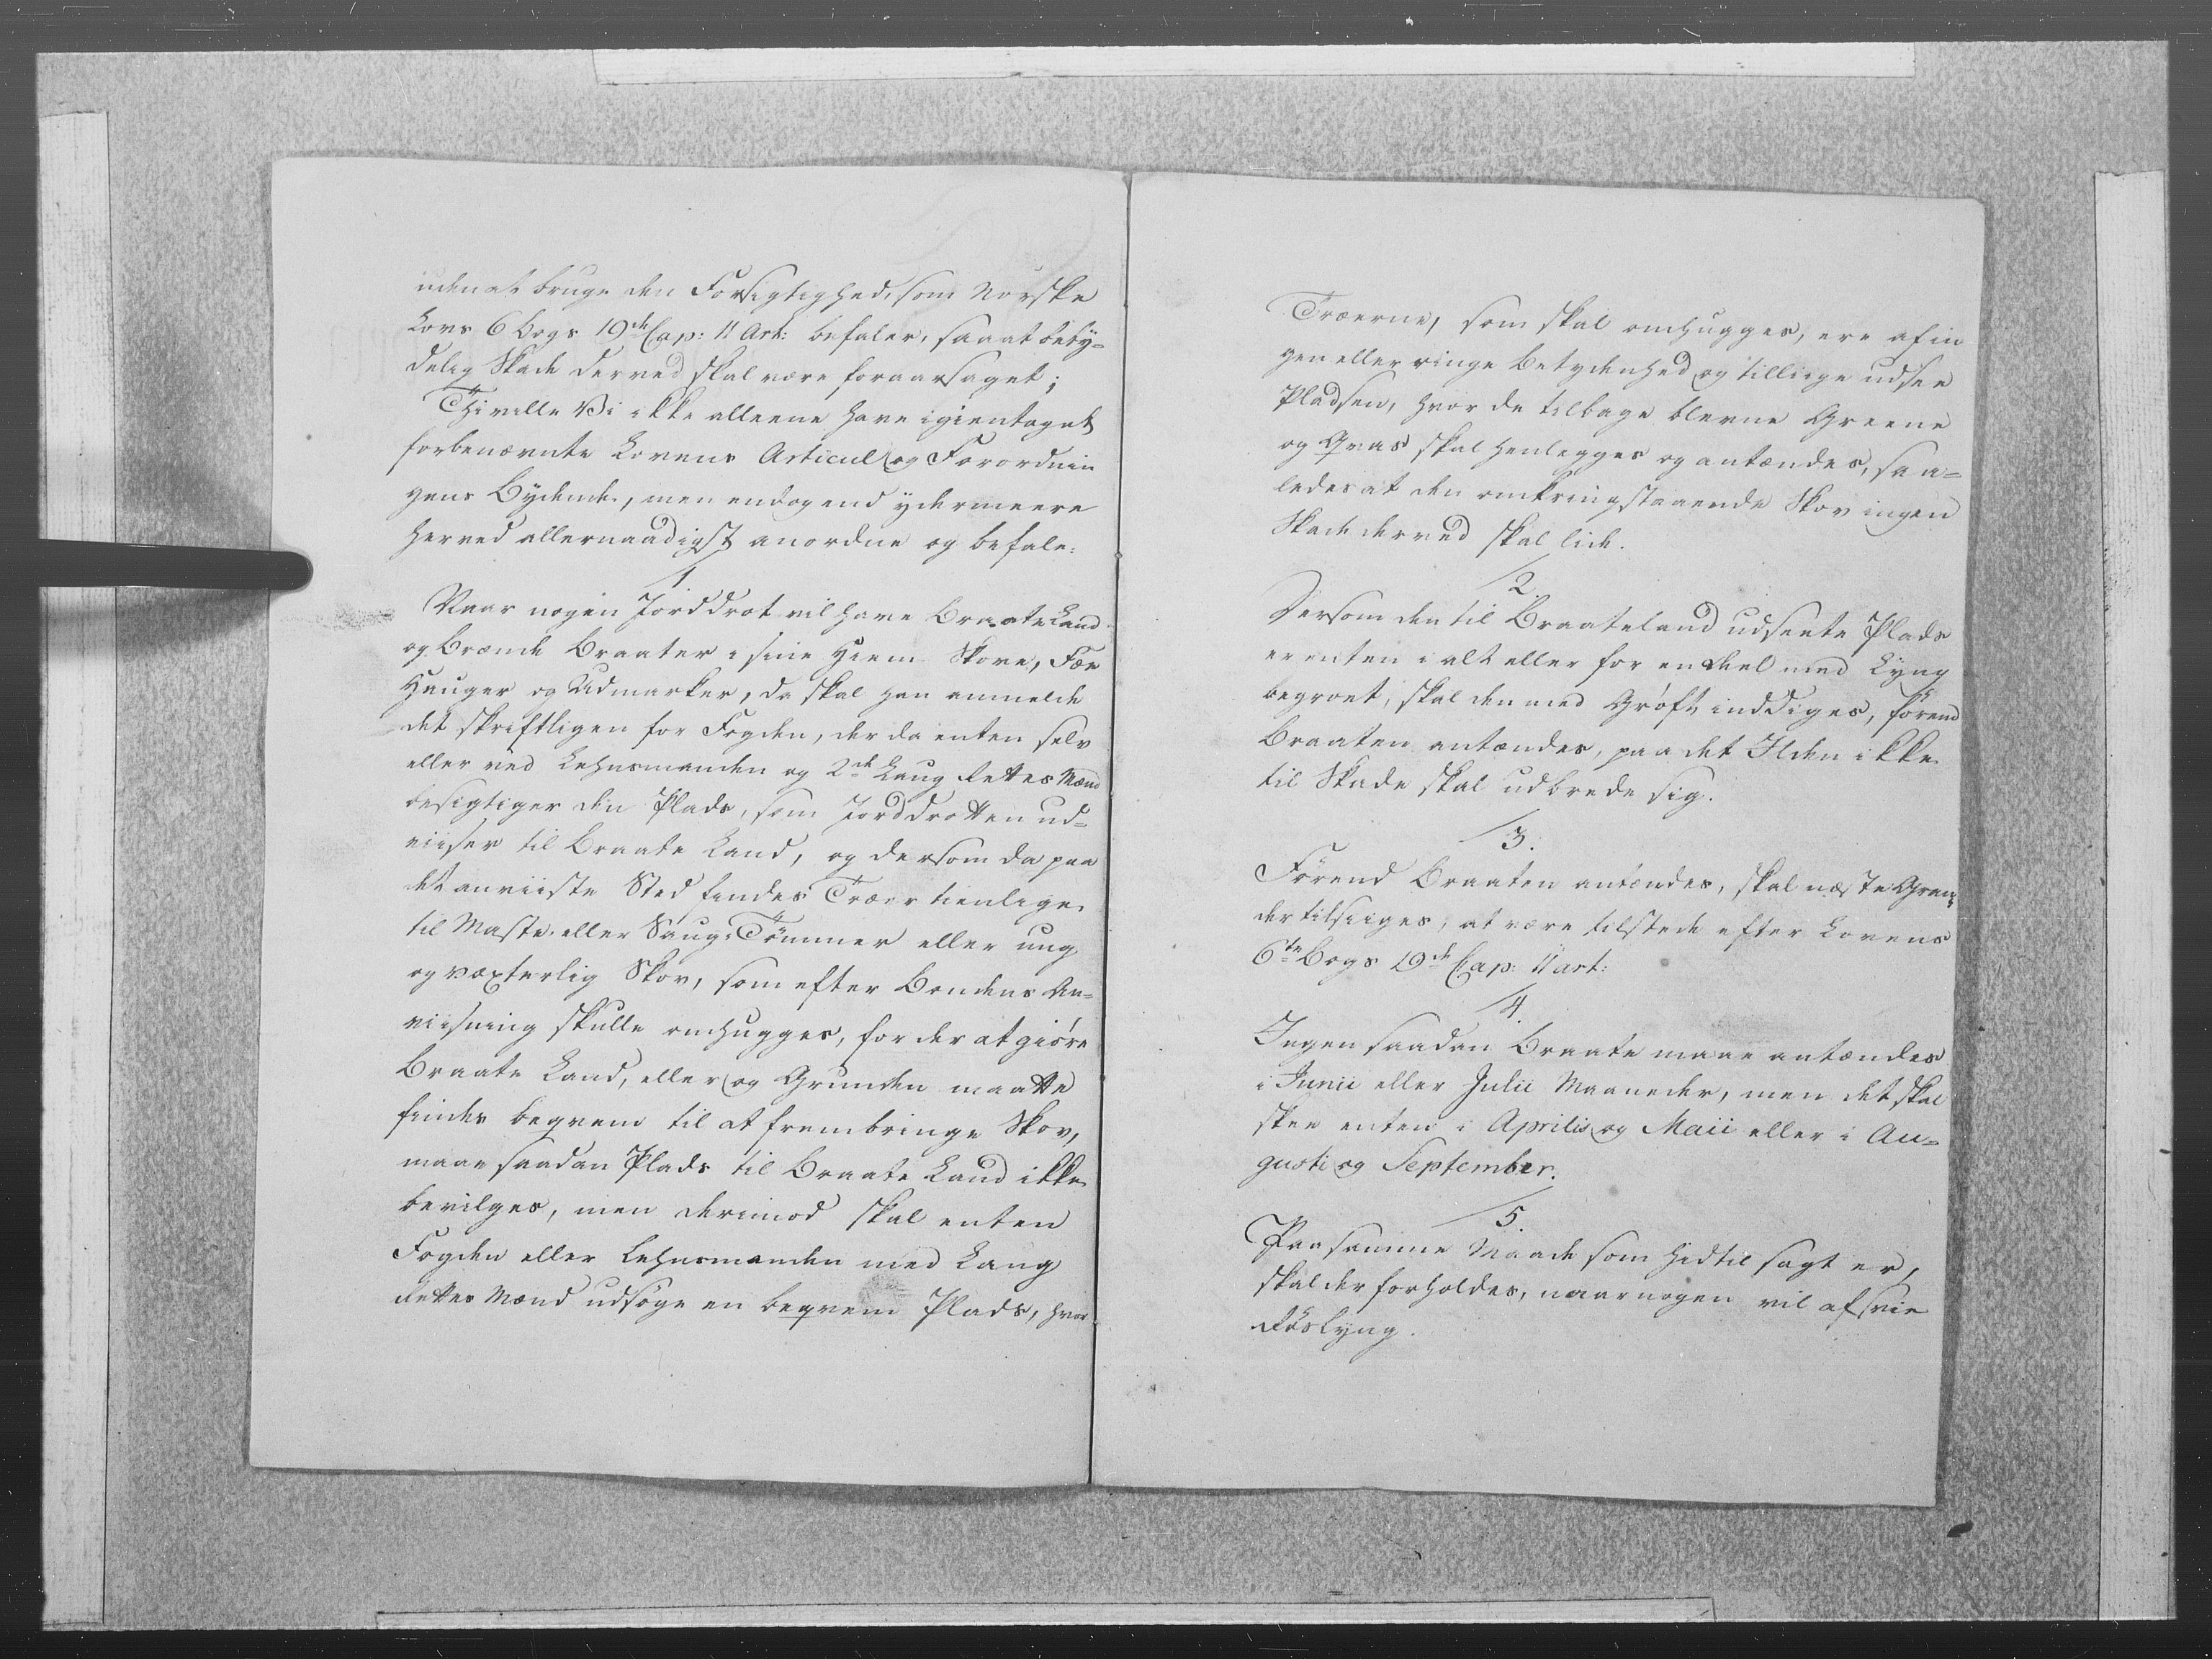 uden at bruge den Forsigtighed, som Norske
Lovs 6 Bogs 19de Cap: 11 Art: befaler, saa at bety=
delig Skade derved skal være foraarsaget;
Thi ville Vi ikke alleene have igientaget
forbenævnte Lovens Articul og Forordnin
gens Bydende, men endog end ydermeere
herved allernaadigst anordne og befale:
1.
Naar nogen Jorddrot vil have Braate Land
og brænde Braater i sine Hiem Skove, Fæe
Hauger og Udmarker, da skal han anmelde
det skriftligen for Fogden, der da enten selv
eller ved Lehnsmanden og 2de Laug Rettes Mænd
besigtiger den Plads, som Jorddrotten ud=
viiser til Braate Land, og dersom da paa
det anviiste Sted findes Træer tienlige
til Maste- eller Saug-Tømmer eller ung
og væxterlig Skov, som efter Bondens An=
viisning skulle omhugges, for der at giöre
Braate Land, eller og Grunden maatte
findes beqvem til at frembringe Skov,
maae saadan Plads til Braate Land ikke
bevilges, men derimod skal enten
Fogden eller Lehnsmanden med Laug
Rettes Mænd udsöge en beqvem Plads, hvor
Træerne, som skal omhugges, ere af in
gen eller ringe Betydenhed og tillige udsee
Pladsen, hvor de tilbage blevne Greene
og Qvas skal henlegges og antændes, saa=
ledes at den omkringstaaende Skov ingen
Skade derved skal lide.
2.
Dersom den til Braateland udseete Plads
er enten i alt eller for en deel med Lyng
begroet, skal den med Gröft inddiges, förend
Braaten antændes, paa det Ilden ikke
til Skade skal udbrede sig.
3.
Förend Braaten antændes, skal næste Gran=
der tilsiiges, at være tilstede efter Lovens
6te Bogs 19de Cap: 11 art:
4.
Ingen saadan Braate maae antændes
i Junii eller Julii Maaneder, men det skal
skee enten i Aprilis og Maii eller i Au=
gusti og September.
5.
Paa samme Maade som hidtil sagt er,
skal der forholdes, naar nogen vil afsvie
Röslyng.